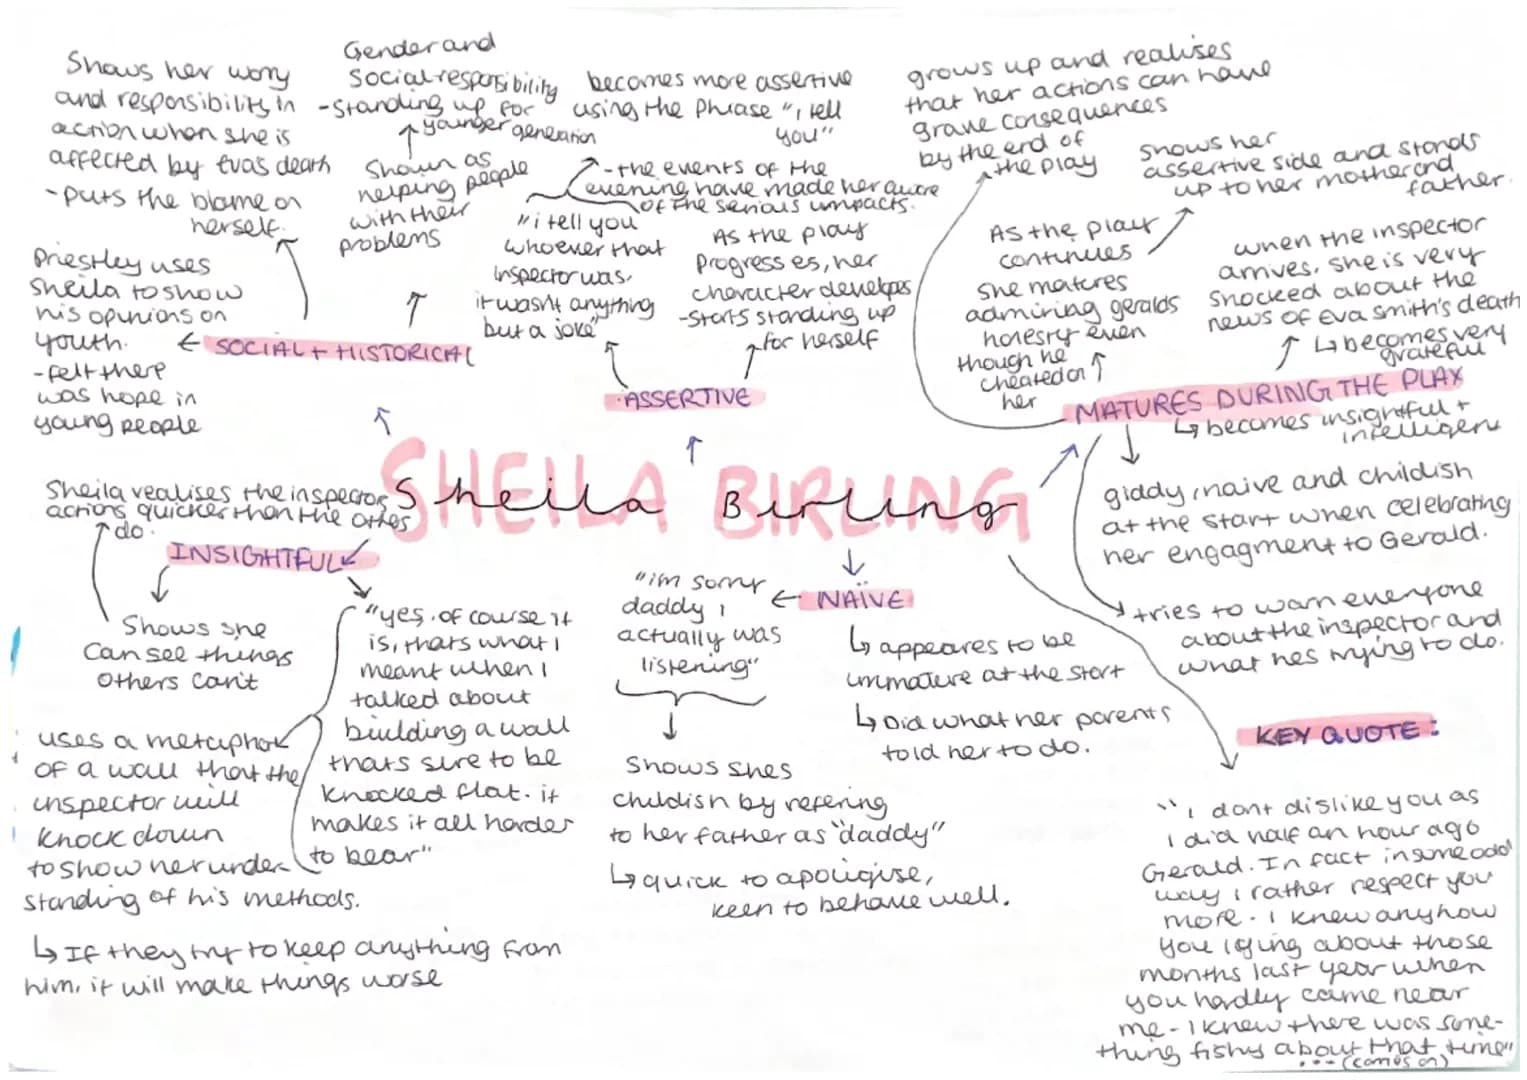 Shows her worry
and responsibility in
action when she is
affected by Evas death
-puts the blame on
herself.
Gender and
Social responsibility
-standing up for
younger generation
Shown as
helping people
with their
problems
Priestley uses
Sheila to show
his opinions on
youth.
-felt there
was hope in
young people
SOCIAL + HISTORICAL
becomes more assertive
using the phrase "i tell
you"
-the events of the
evening have made her aware
of the serious impacts.
"i tell you
whoever that
inspector was,
it wasnt anything
but a joke"
As the play
progresses, her
character develops
-starts standing up
for herself
ASSERTIVE
grows up and realises
that her actions can have
grave consequences
by the end of
the play
shows her
assertive side and stands
up to her mother and
father.
As the play
continues
she matures
admiring geralds
honesty even
though he
cheated on
her
when the inspector
arrives, she is very
shocked about the
news of Eva Smith's death
↳ becomes very
grateful
MATURES DURING THE PLAY
↳ becomes insightful +
intelligent
giddy, naive and childish
at the start when celebrating
her engagment to Gerald.
tries to warn everyone
about the inspector and
what hes trying to do.
SHEILA BIRLING
Sheila Birling
Sheila realises the inspectors
actions quicker than the others
do.
INSIGHTFUL
Shows she
can see things
others can't
"yes, of course it
is, thats what I
meant when I
talked about
building a wall
thats sure to be
knocked flat. it
makes it all harder
to bear"
uses a metaphor
of a wall that the
inspector will
knock down
to show her under
standing of his methods.
↳ If they try to keep anything from
him, it will make things worse
NAÏVE
"im sorry
daddy i
actually was
listening"
Shows shes
childish by refering
to her father as "daddy"
↳ quick to apoligise,
keen to behave well.
↳ appeares to be
immature at the start
↳ Did what her parents
told her to do.
KEY QUOTE:
"i dont dislike you as
i did half an hour ago
Gerald. In fact in some odd
way i rather respect you
more. I knew anyhow
you lying about those
months last year when
you hardly came near
me - I knew there was some-
thing fishy about that time"
... (comes on)